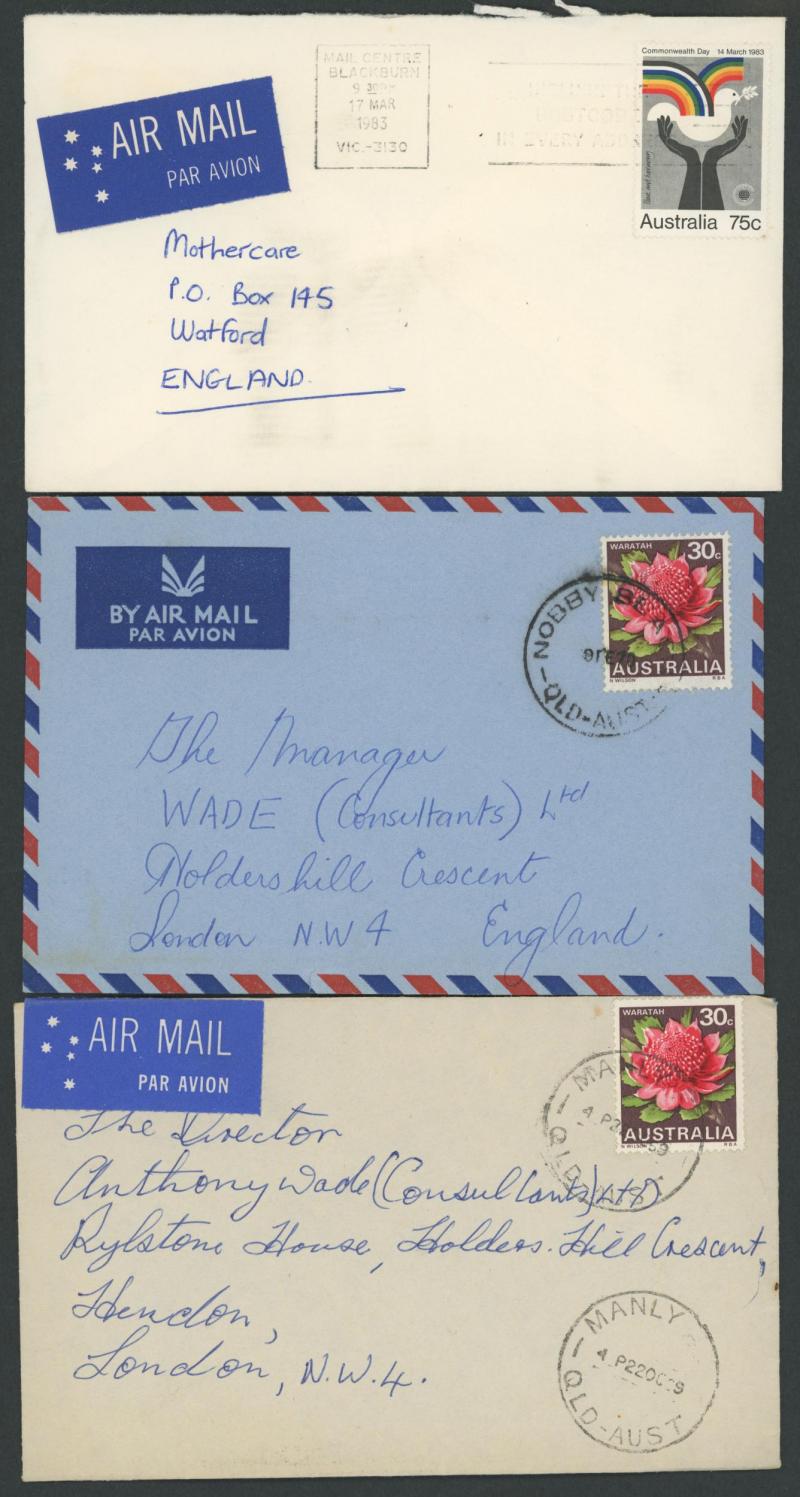 AIR MAIL
PAR AVION
MAIL CENTRE
BLACKBURN
9 30PM
17 MAR
1983
VIC.-3130
IN EVERY
Commonwealth Day 14 March 1983
Australia 75c
Mothercare
P.O. Box 145
Watford
ENGLAND.
BY AIR MAIL
PAR AVION
WARATAH 30c
AUSTRALIA
N WILSON RBA
NOBBY
QLD-AUST
The Manager
WADE (Consultants) Ltd
Holdershill Crescent
London N.W 4 England.
AIR MAIL
PAR AVION
WARATAH 30c
AUSTRALIA
N WILSON RBA
QLD
The Director
Anthony Wade (Consultants) Ltd
Rylstone House, Holders. Hill Crescent,
Hendon,
London, N.W.4.
MANLY
4 P22OC69
QLD-AUST